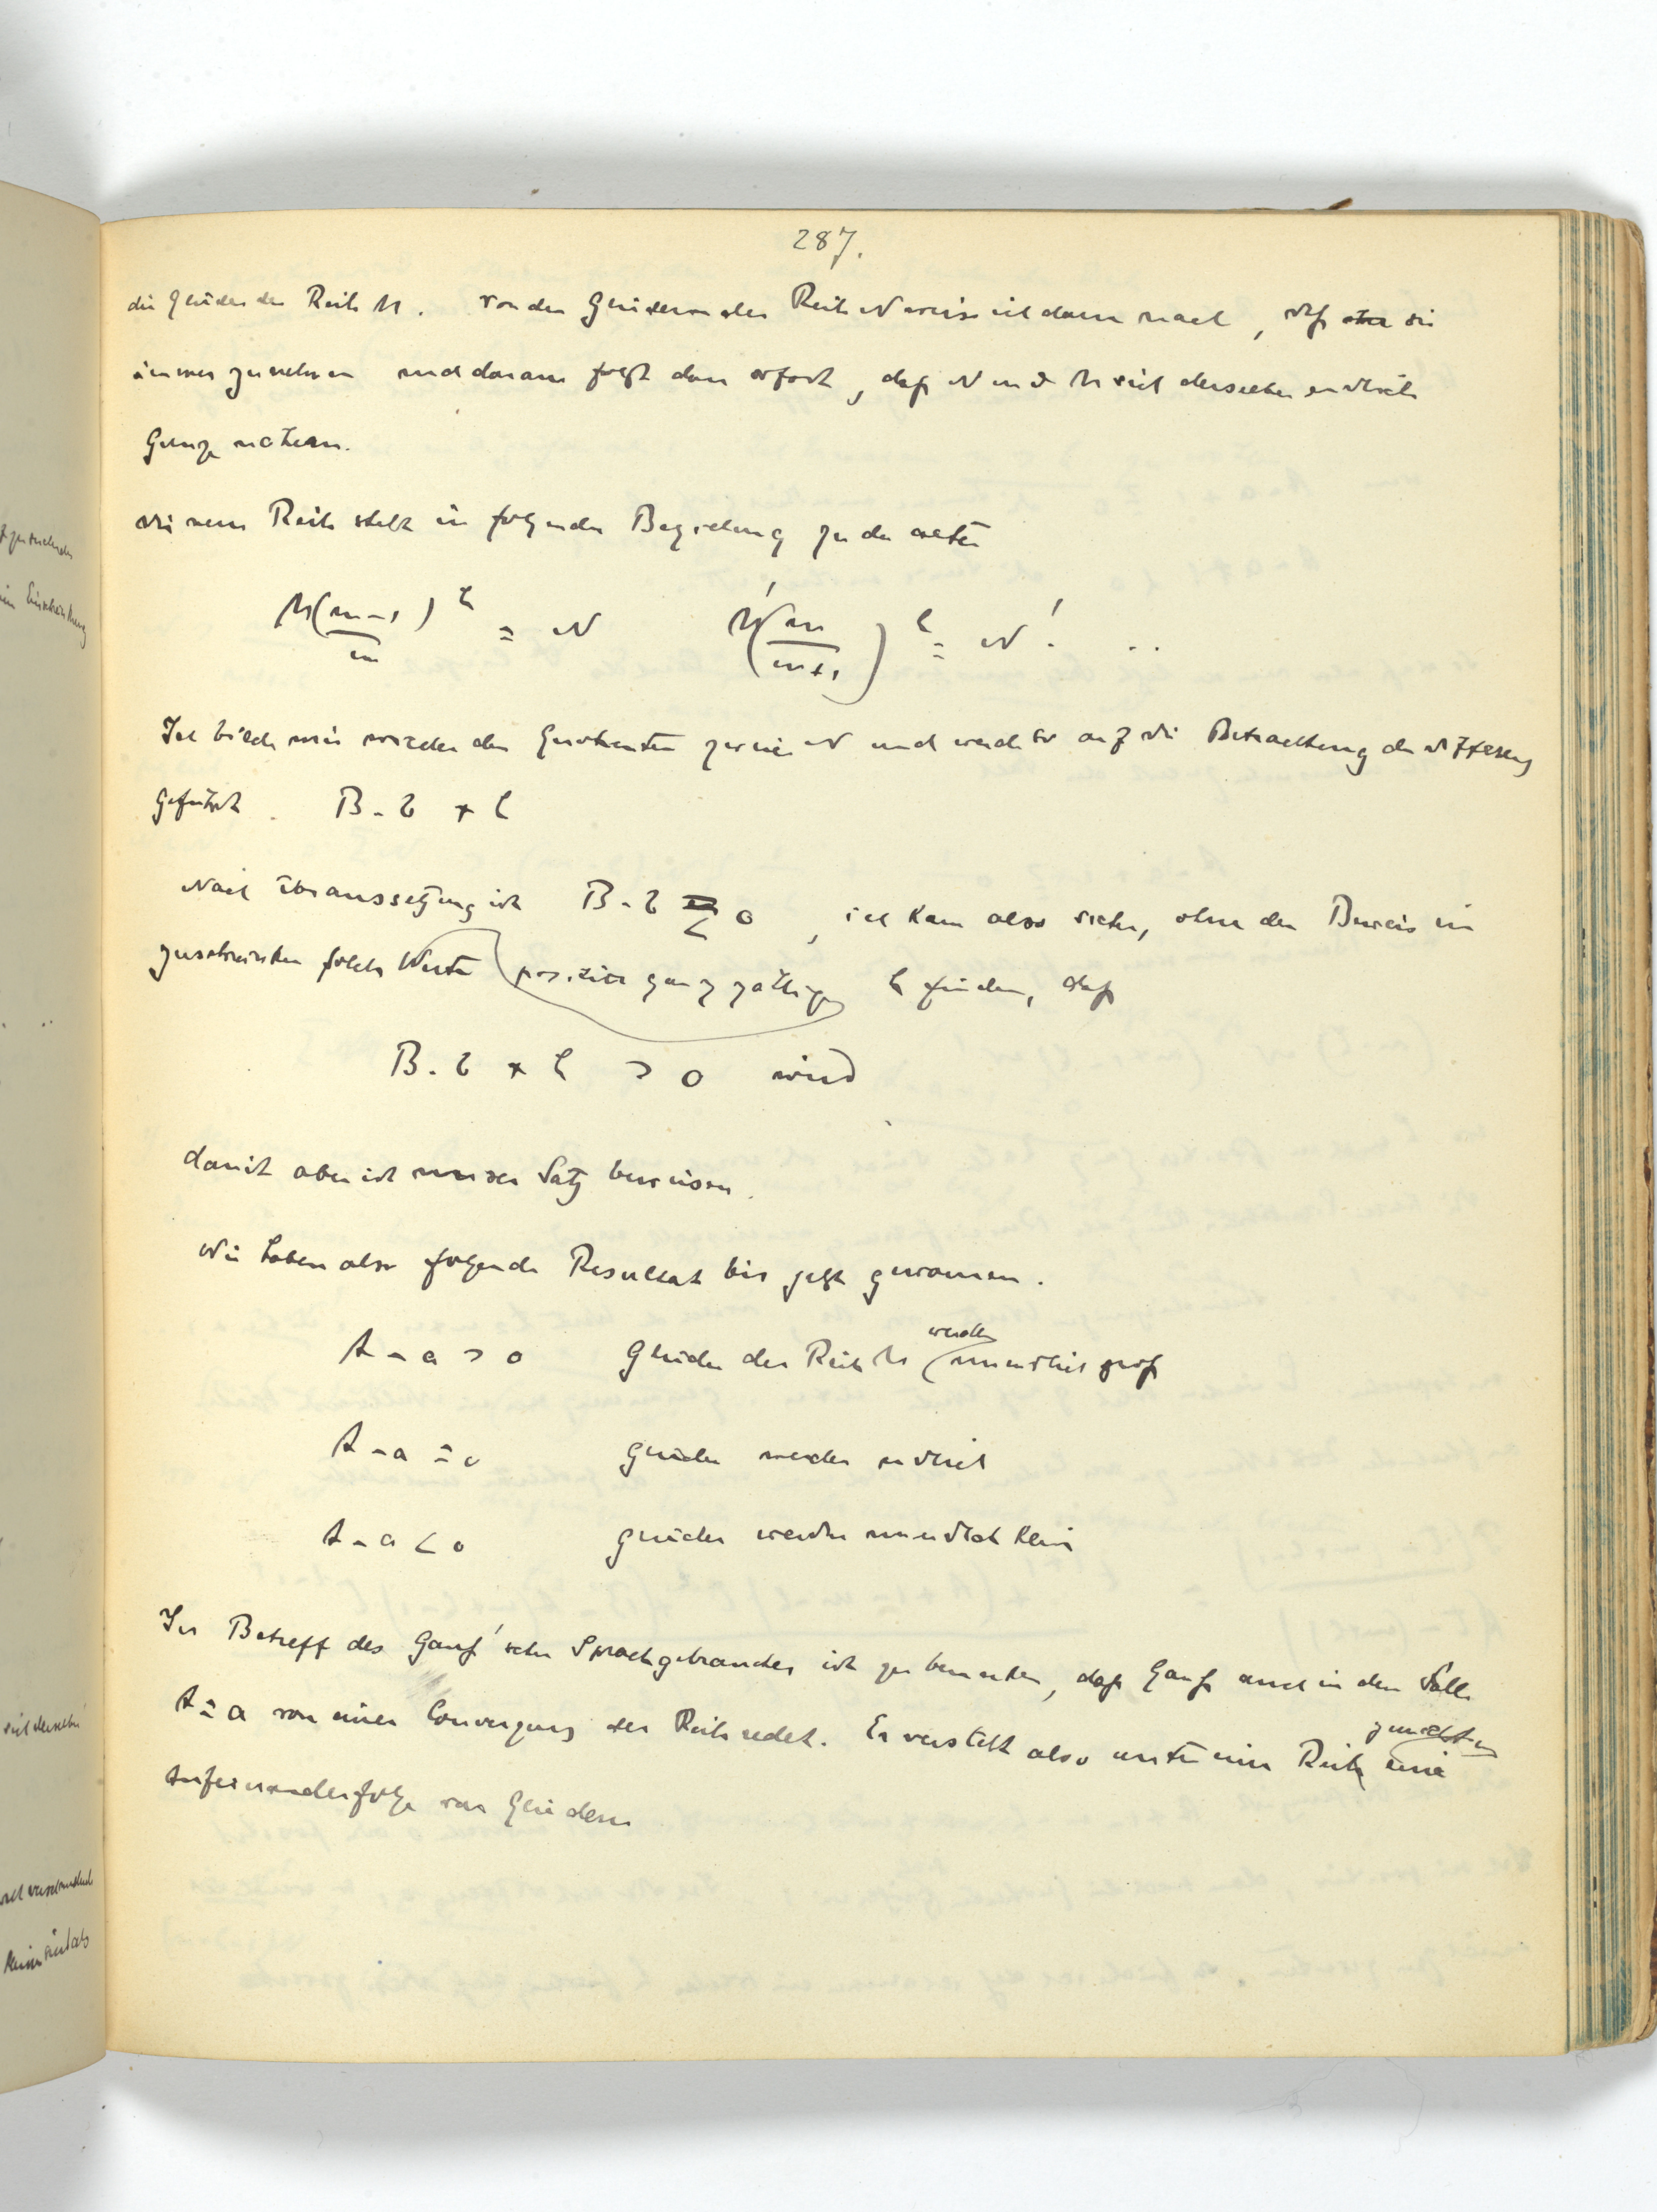 287.
die Glieder der Reihe M. Von den Gliedern der Reihe N weise ich dann nach, daß sie
immer zunehmen und daraus folgt dann sofort, daß N und M sich derselben endlichen
Grenze nähern.
Die neue Reihe steht in folgender Beziehung zu der alten
M(m-1 / m)^h = N M'(m / m+1)^h = N' ..
Ich bilde mir wieder den Quotienten zweier N und werde so auf die Betrachtung der Differenz
geführt. B - b + h
Nach Voraussetzung ist B - b < 0, ich kann also sicher, ohne den Beweis ein
zuschränken solche Werte positive ganzzahlige h finden, daß
B - b + h > 0 wird
damit aber ist unser Satz bewiesen.
Wir haben also folgende Resultat bis jetzt gewonnen.
A - a > 0 Glieder der Reihe M werden unendlich groß
A - a = 0 Glieder werden endlich
A - a < 0 Glieder werden unendlich klein
In Betreff des Gauß'schen Sprachgebrauches ist zu bemerken, daß Gauß auch in dem Falle
A = a von einer Convergenz der Reihe redet. Er versteht also unter einer Reihe zunächst eine
Aufeinanderfolge von Gliedern